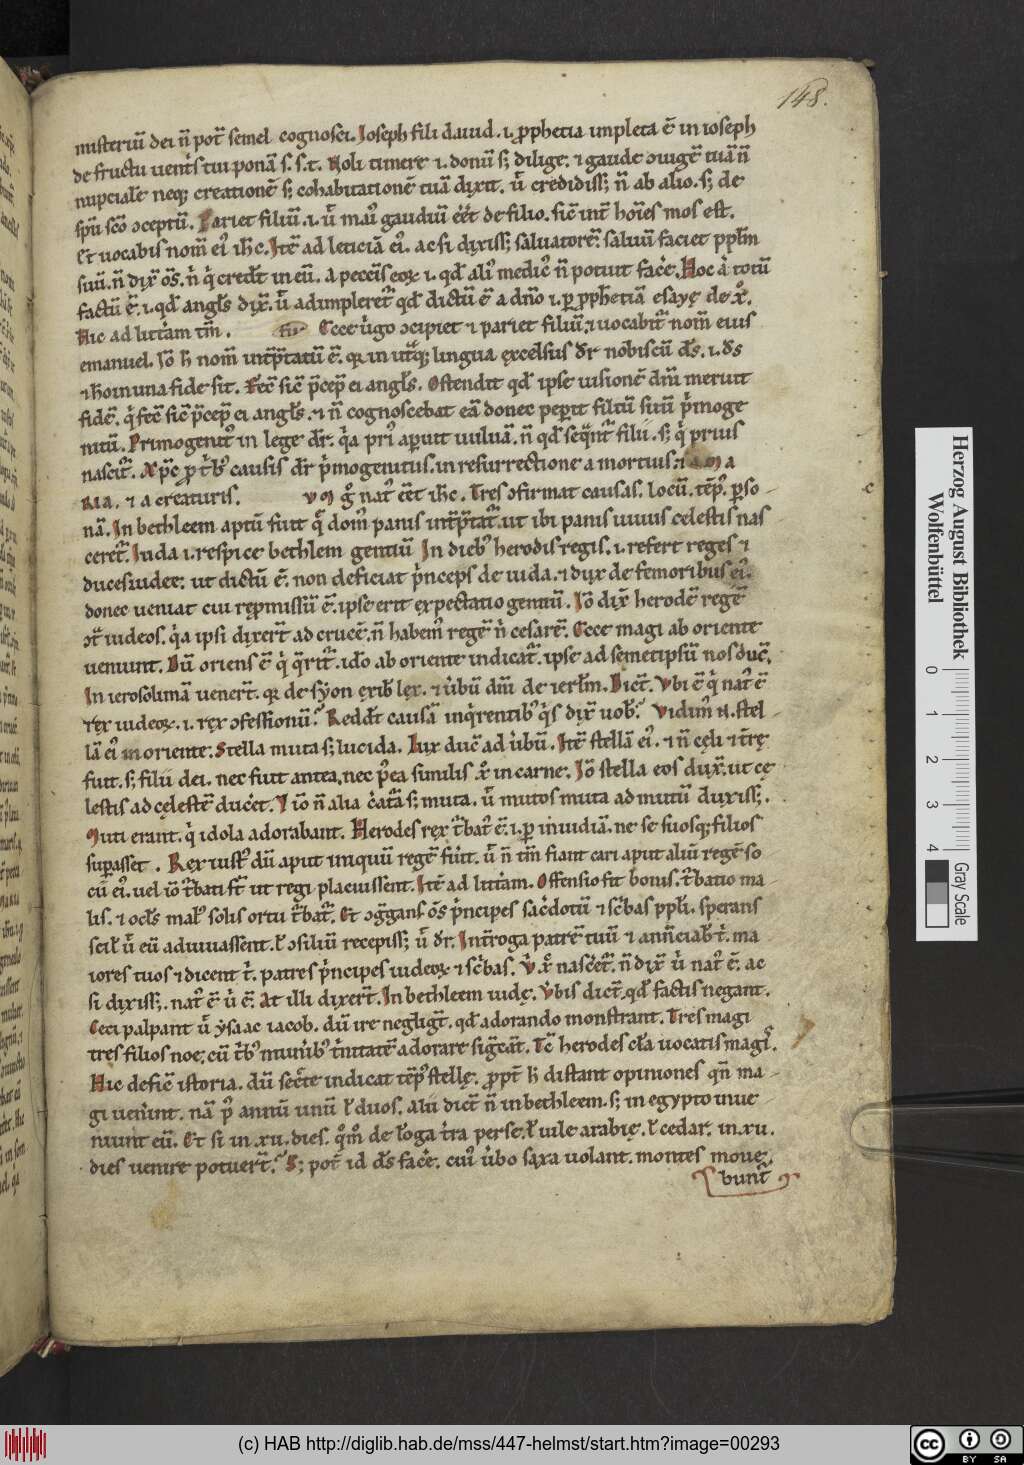 148.
misteriū dei n̄ pot̄ semel cognosci. Ioseph fili dauid .i. ꝓphetia impleta ē in ioseph
de fructu uent͛s tui ponā s. s. t. Noli timere .i. donū s; dilige. ⁊ gaude ↄiugē tuā n̄
nupciale neq; creationē s; cohabitationē tuā dixit. ul̄ credidiss; n̄ ab alio. s; de
spū scō ↄceptū. Pariet filiū .i. ul̄ mai᷒ gaudiū eēt de filio. sic̄ int̄ hoīes mos est.
Et uocabis nom̄ ei᷒ ih̄c. Itē ad leticiā ei᷒. ac si dixiss; saluatorē. saluū faciet ppl̄m
suū. n̄ dix̄ ōs. n̄ q̇ credit in eū. a peccīs eoꝝ .i. qd̄ ali᷒ medic᷒ n̄ potuit facē. Hoc ā totū
factū ē .i. qd̄ angl̄s dix̄. ul̄ adimpleret᷒ qd̄ dictū ē a dn̄o .i. ꝑ ꝓphetiā esayę de x̄.
Hic ad litt̄am tm̄. Ecce u̇go ↄcipiet ⁊ pariet filiū, ⁊ uocabit᷒ nom̄ eius
emanuel. Iō h̄ nom̄ int̄p̄tatū ē. qꝛ in ut̄q; lingua excelsus dr̄ nobiscū ds̄ .i. ds̄
⁊ hō in una fide sit. Fec̄ sic̄ p̄cep̄ ei angl̄s. Ostendit qd̄ ipse uisionē dn̄i meruit
fidē. q̇ fec̄ sic̄ p̄cep̄ ei angl̄s. ⁊ n̄ cognoscebat eā donec peperit filiū suū ṗmoge
nitū. Primogenit᷒ in lege dr̄. q̇a pri᷒ aperuit uuluā. n̄ qd̄ seq̄nt᷒ filii. s; q̇ prius
nascit᷒. Xp̄c ꝓ t̄b᷒ causis dr̄ ṗmogenitus. in resurrectione a mortuis. ⁊ a ma
ria. ⁊ a creaturis. Vm̄ g̊ nat᷒ eēt ih̄c. Tres ↄfirmat causas. locū. tēp᷒. ꝑso
nā. In bethleem aptū fuit q̄ dom᷒ panis int̄p̄tat᷒. ut ibi panis uiuus celestis nas
ceret᷒. Iuda .i. respice bethlem gentiū In dieb᷒ herodis regis .i. refert reges ⁊
duces iudee. ut dictū ē. non deficiat ṗnceps de iuda. ⁊ dux de femoribus ei᷒.
donec ueniat cui rep̄missū ē. ipse erit expectatio gentiū. Iō dix̄ herodē regē
ↄt̄ iudeos. q̇a ipsi dixer̄t ad crucē. n̄ habem᷒ regē n̄ cesarē. Ecce magi ab oriente
ueniunt. Dū oriens ē q̇ q̄rit᷒. idō ab oriente indicat᷒. ipse ad semetipsū nos ducē.
In ierosolimā uener̄t. qꝛ de syon exib̄ lex. ⁊ u̇bū dn̄i de ierl̄m. Dicēt. Vbi ē q̇ nat᷒ ē
rex iudeoꝝ .i. rex ↄfessionū. Reddt̄ causā inq̇rentib᷒ q̇s dix̄ uob̄. Vidim᷒ n̄. stel
lā ei᷒ in oriente. Stella muta s; lucida. Lux duc̄ ad u̇bū. Itē stellā ei᷒. ⁊ n̄ cęli ⁊ t̄rę
fuit. s; filii dei. nec fuit antea, nec p᷒ea similis x̄ in carne. Iō stella eos dux̄. ut cę
lestis ad cęlestē ducēt. V iō n̄ alia c̄atā s; muta. ul̄ mutos muta ad mutū duxiss;.
Muti erant. q̇ idola adorabant. Herodes rex t̄bat᷒ ē .i. ꝑ inuidiā. ne se suosq; filios
suꝑasset. Rex iust᷒ dū aput iniquū regē fuit. ul̄ n̄ tm̄ fiant cari aput aliū regē so
cii ei᷒. uel iō t̄bati st̄ ut regi placuissent. Itē ad litt̄am. Offensio fit bonis. t̄batio ma
lis. ⁊ ocl̄s mal᷒ solis ortu t̄bat᷒. Et ↄgᷓgans ōs ṗncipes sac̄dotū ⁊ sc̄bas ppl̄i. sperans
scil̄ ul̄ eū adiuuassent. l̄ ↄsiliū recepiss; ul̄ dr̄. Int̄roga patrē tuū ⁊ ann̄ciab̄ t̄. ma
iores tuos ⁊ dicent t̄. patres ṗncipes iudeoꝝ ⁊ sc̄bas. V x̄ nascēt᷒. n̄ dix̄ u̇ nat᷒ ē. ac
si dixiss;. nat᷒ ē u̇ ē. At illi dixer̄t. In bethleem iudę. Vbis dict̄. qd̄ factis negant.
Ceci palpant ul̄ ysaac iacob. dū ire negligt̄. qd̄ adorando monstrant. Tres magi
tres filios noe, cū t̄b᷒ munib᷒ ṫnitatē adorare sigᷓcāt. Tc̄ herodes cl̄a uocatis magi᷒.
Hic defic̄ istoria. dū secrēte indicat tēp᷒ stellę. ꝓpt̄ h̄ distant opiniones qn̄ ma
gi uener̄unt. nā p᷒ annū unū l̄ duos. alii dict̄ n̄ in bethleem. s; in egypto inue
niunt eū. Et si in .xii. dies. q̊m᷒ de loga t̄ra perse. l̄ uile arabię. l̄ cedar. in .xii.
dies uenire potuer̄t. S; pot̄ id ds̄ facē. cui᷒ u̇bo saxa uolant. montes moue
bunt᷒
c
Herzog August Bibliothek
Wolfenbüttel
0 1 2 3 4
Gray Scale
(c) HAB http://diglib.hab.de/mss/447-helmst/start.htm?image=00293
cc BY SA